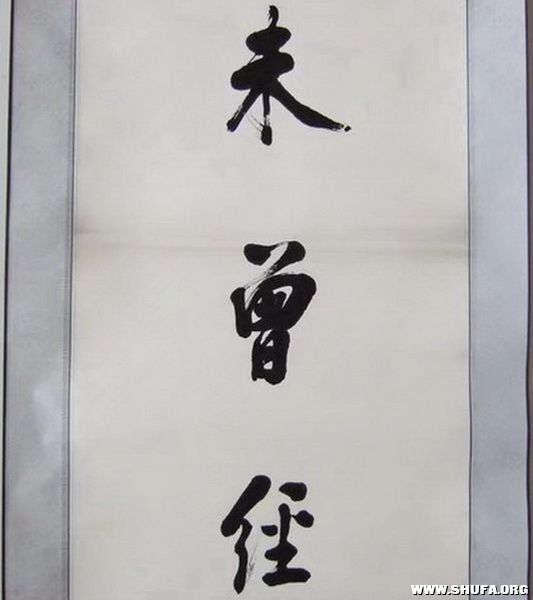 未曾經
WWW.SHUFA.ORG